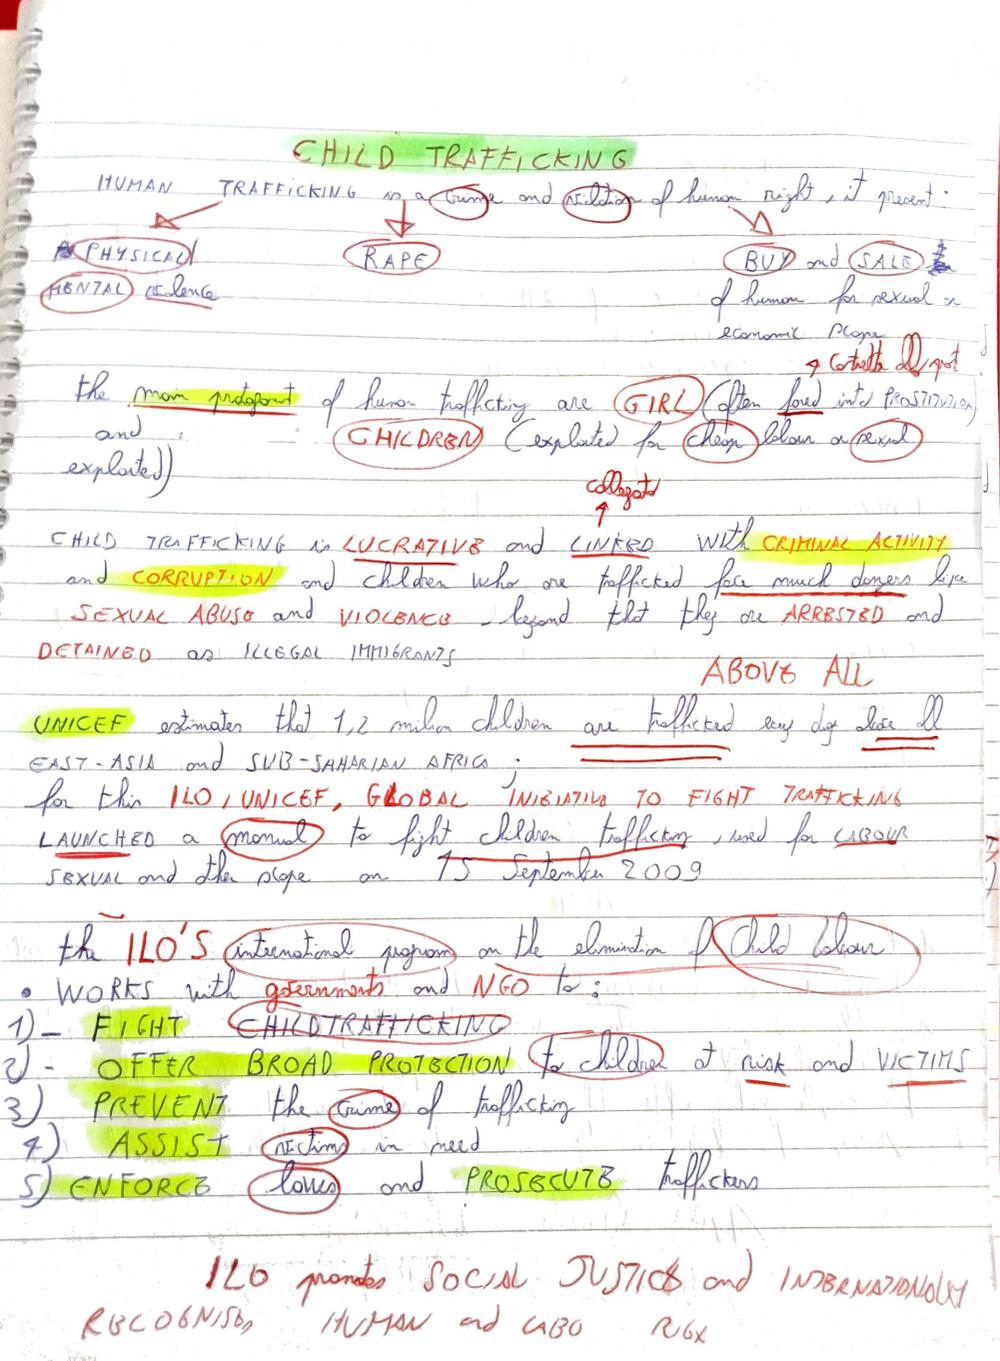 CHILD TRAFFICKING
HUMAN TRAFFICKING is a crime and violation of human right, it present:
PHYSICAL/ RAPE BUY and SALE
MENTAL violence of human for sexual
economic slope
the main of human trafficking are GIRL (often forced into PROSTITUTION)
and CHILDREN (exploited for cheap labour or sexual
exploited)
collegato
CHILD TRAFFICKING is LUCRATIVE and LINKED with CRIMINAL ACTIVITY
and CORRUPTION and children who are trafficked face much dangers like
SEXUAL ABUSE and VIOLENCE beyond that they are ARRESTED and
DETAINED as ILLEGAL IMMIGRANTS
ABOVE ALL
UNICEF estimates that 1,2 milion children are trafficked every day all
EAST-ASIA and SUB-SAHARIAN AFRICA ;
for this ILO, UNICEF, GLOBAL INIZIATIVE TO FIGHT TRAFFICKING
LAUNCHED a manual to fight children trafficking, used for LABOUR
SEXUAL and other slope on 15 September 2009
the ILO'S international program on the elimination of Child labour
• WORKS with governments and NGO to:
1)- FIGHT CHILDTRAFFICKING
2)- OFFER BROAD PROTECTION to children at risk and VICTIMS
3) PREVENT the crime of trafficking
4) ASSIST victims in need
5) ENFORCE laws and PROSECUTE traffickers
ILO promotes SOCIAL JUSTICE and INTERNATIONALLY
HUMAN and LABO